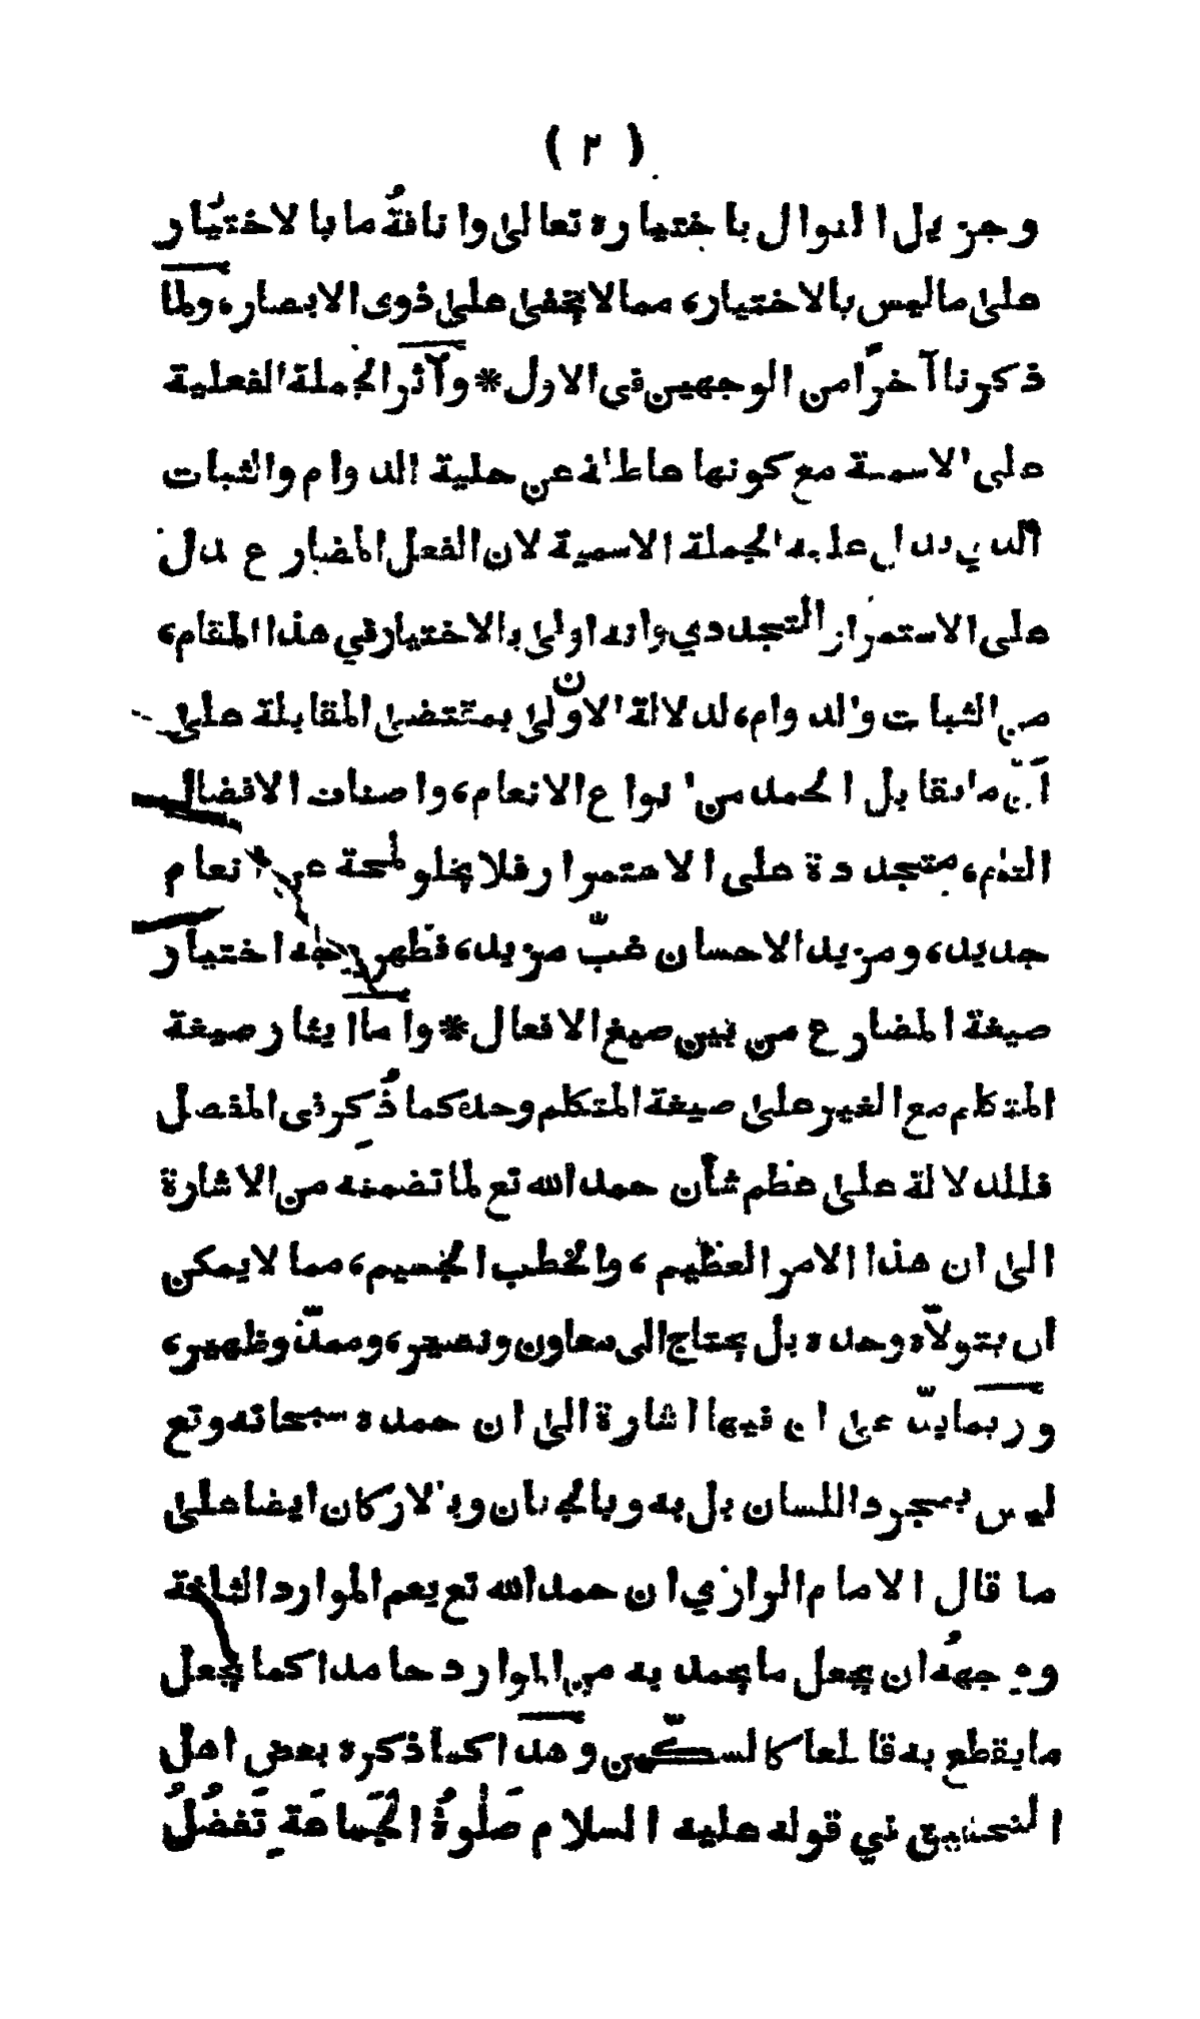 ( ٢ )
وجزيل النوال باختياره تعالى وانافةُ ما بالاختيار
على ما ليس بالاختيار، مما لا يخفى على ذوى الابصار، ولما
ذكرنا آخرًا من الوجهين فى الاول * وآثر الجملة الفعلية
على الاسمية مع كونها عاطلة عن حلية الدوام والثبات
الذي يدل عليه الجملة الاسمية لان الفعل المضارع يدل
على الاستمرار التجددي وانه اولى بالاختيار في هذا المقام،
من الثبات والدوام، لدلالة الاولى بمقتضى المقابلة على
أنّ ما يقابل الحمد من انواع الانعام، واصناف الافضال
متجددة على الاستمرار فلا يخلو لمحة عن انعام
جديد، ومزيد الاحسان غبّ مزيد، فظهر وجه اختيار
صيغة المضارع من بين صيغ الافعال * واما ايثار صيغة
المتكلم مع الغير على صيغة المتكلم وحده كما ذُكِر فى المفصل
فللدلالة على عظم شأن حمد الله تع لما تضمنه من الاشارة
الى ان هذا الامر العظيم، والخطب الجسيم، مما لا يمكن
ان يتولاّه وحده بل يحتاج الى معاون ونصير، وممدّ وظهير،
وربما يدّعى ان فيها اشارة الى ان حمده سبحانه وتع
ليس بمجرد اللسان بل به وبالجنان وبالاركان ايضا على
ما قال الامام الرازي ان حمد الله تع يعم الموارد الثلثة
ووجههُ ان يجعل ما يحمد به من الموارد حامدا كما يجعل
ما يقطع به قاطعا كالسكّين وهذا كما ذكره بعض اهل
التحقيق في قوله عليه السلام صَلٰوةُ الجَماعَةِ تَفضُلُ